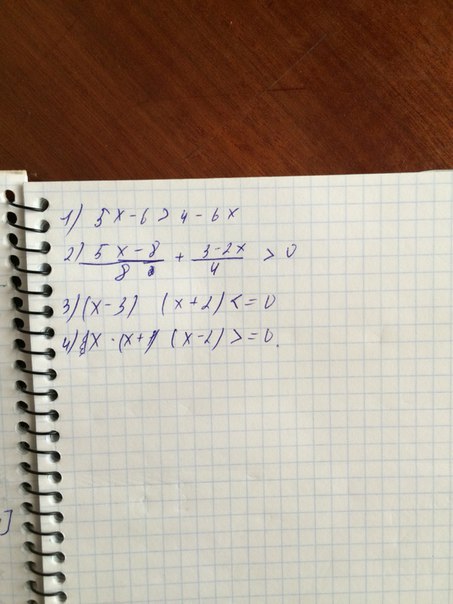 1) 5x-6>4-6x
2) 5x-8/8 + 3-2x/4 > 0
3) (x-3) (x+2)<=0
4) x·(x+1) (x-2)>=0.